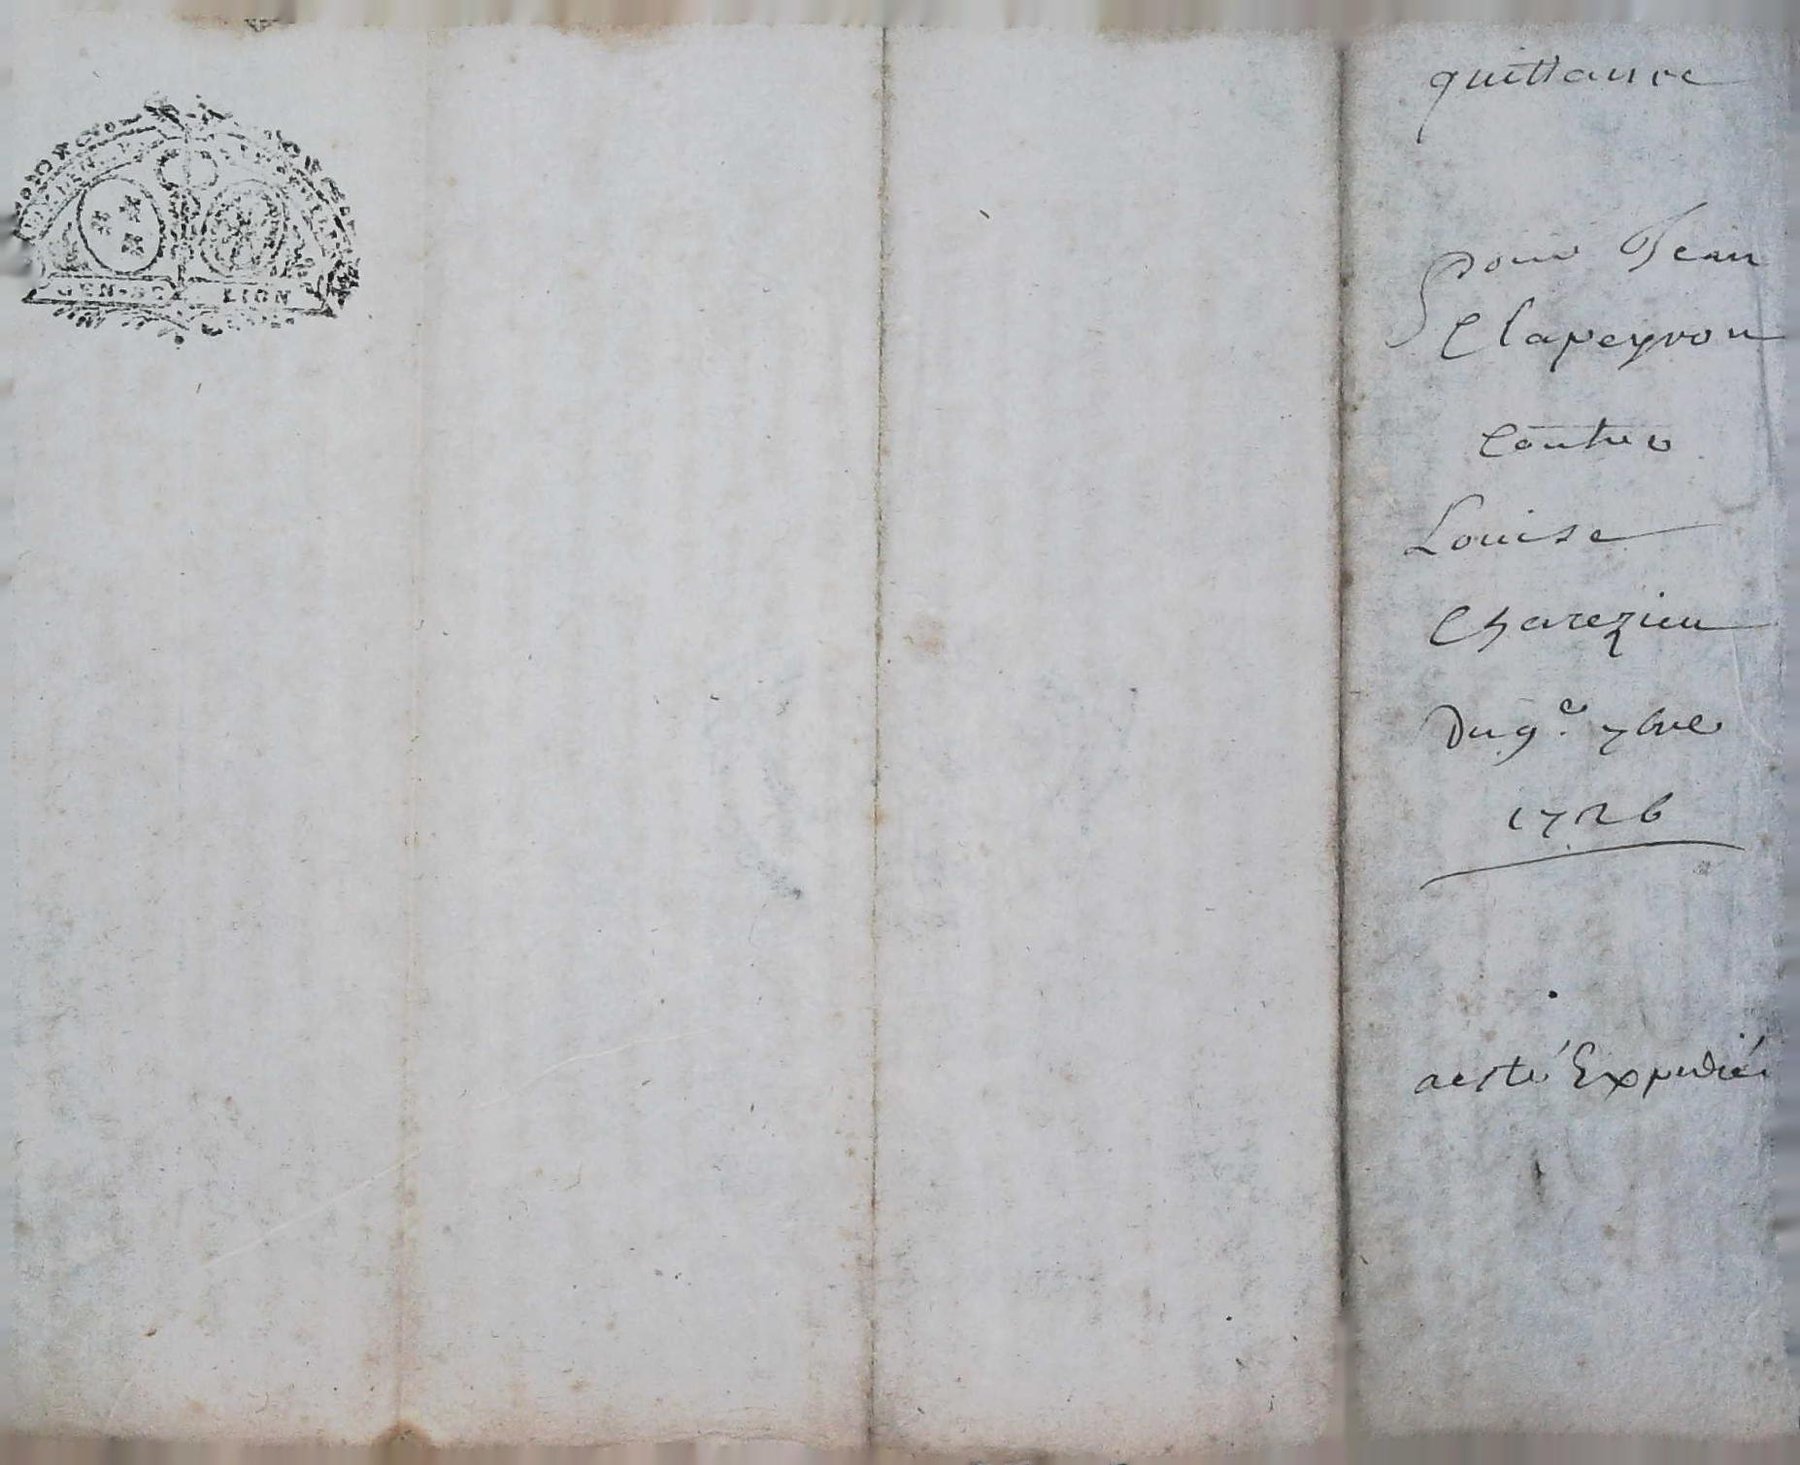 GEN. DE LION
quittance
pour Jean
Clapeyron
Contre
Louise
Charezieu
Du 9e. 7bre
1726
a esté Expedié